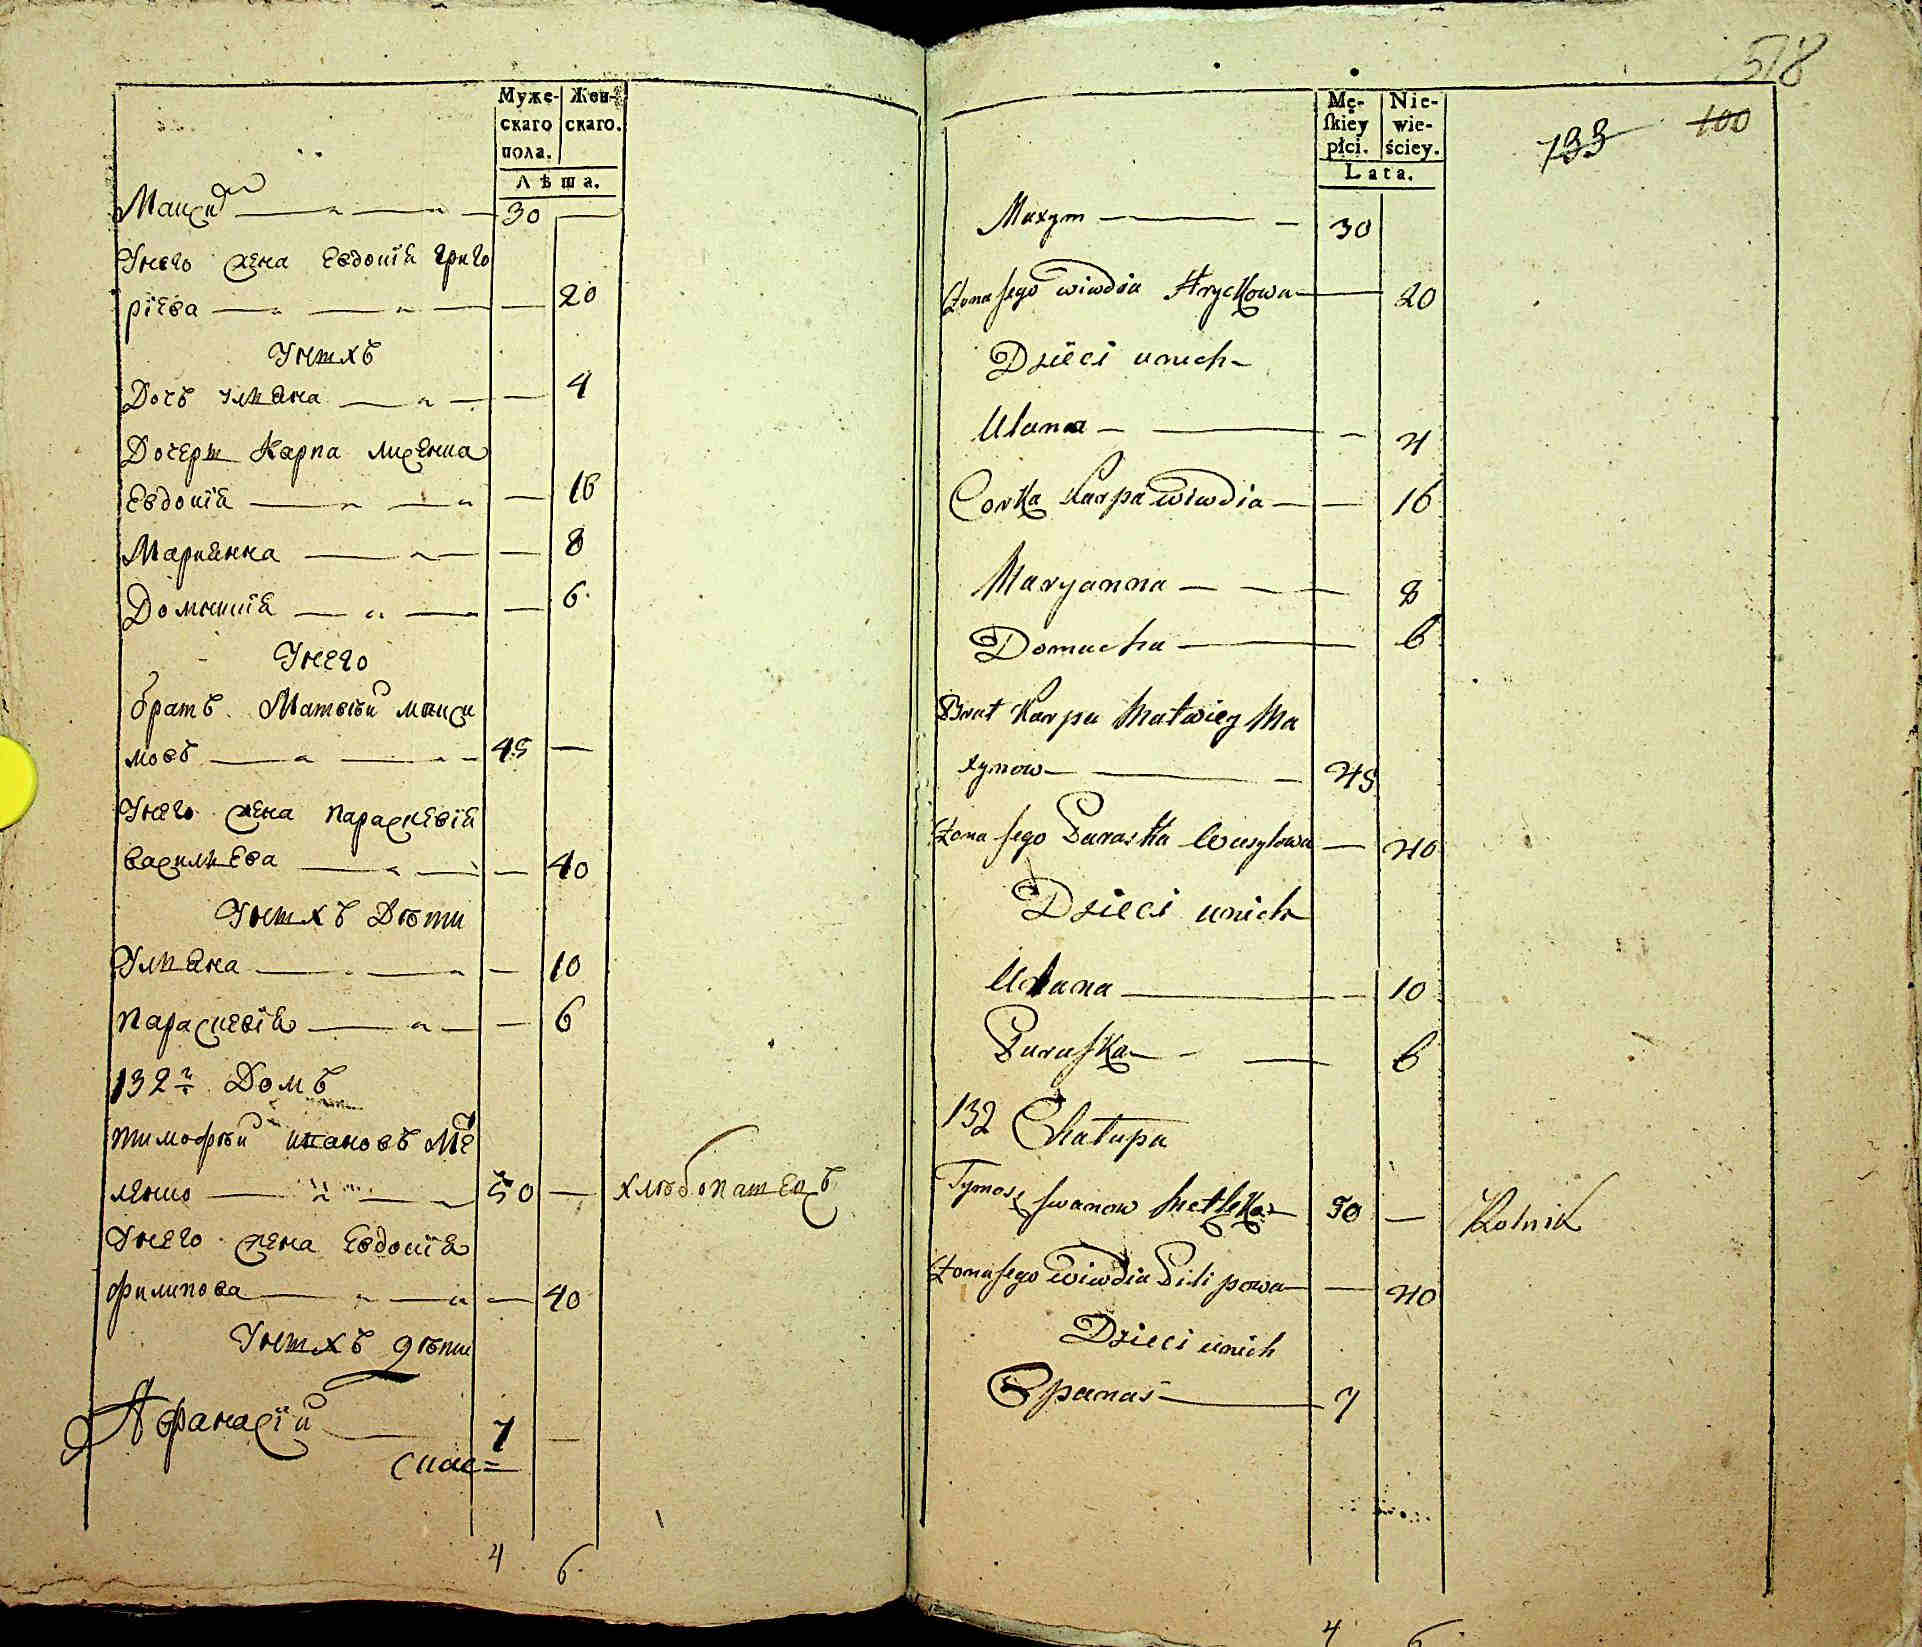 Муже- Жен-
скаго скаго.
пола.
Лѣта.
Максим 30
Унего жена Евдокія григо
ріева 20
Унихъ
Дочь ульяна 4
Дочери Карпа
Евдокія 16
Марианна 8
Домникія 6
Унего
братъ Матвѣй макси
мовъ 45
Унего жена параскевія
васильева 40
Унихъ Дѣти
Ульяна 10
параскевія 6
132й Домъ
тимофѣй ивановъ Ме
50 хлѣбопашецъ
Унего жена Евдокія
филипова 40
Унихъ дѣти
Афанасій 7
4 6
518
133 100
Mę- Nie-
skiey wie-
płci. ściey.
Lata.
Maxym 30
Żona jego Wiwdia Hryckowa 20
Dzieci unich
Ulana 4
Corka Karpa Wiwdia 16
Maryanna 8
Domucha 6
Brat Karpa Matwiey Ma
xymow 45
Żona jego Paraska Wasylowa 40
Dzieci unich
Ulana 10
Paraska 6
132 Chałupa
Tymosz Iwanow 50 Rolnik
Żona jego Wiwdia Pilipowa 40
Dzieci unich
Opanas 7
4 6